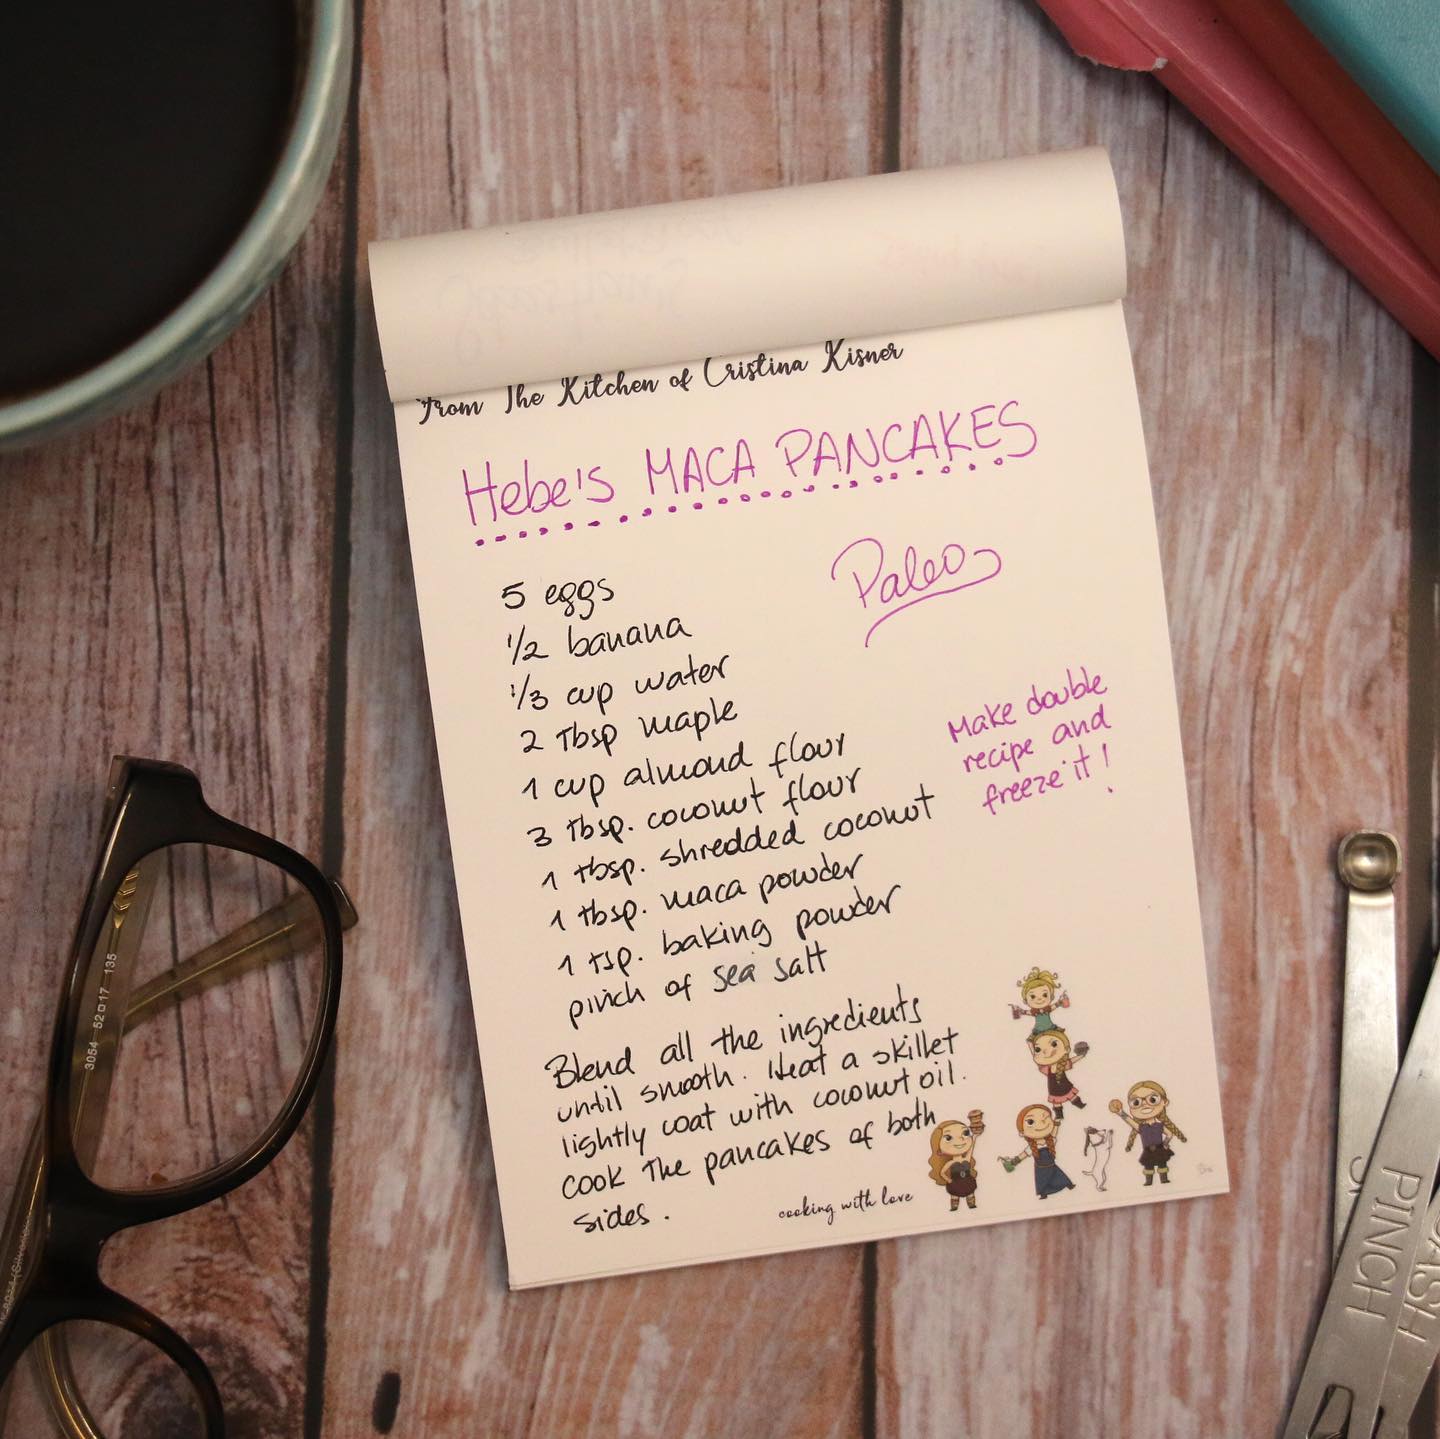 From The Kitchen of Cristina Kisner
Hebe's MACA PANCAKES
Paleo
5 eggs
1/2 banana
1/3 cup water
2 Tbsp maple
1 cup almond flour
3 tbsp. coconut flour
1 tbsp. shredded coconut
1 tbsp. maca powder
1 tsp. baking powder
pinch of sea salt
Make double
recipe and
freeze it!
Blend all the ingredients
until smooth. Heat a skillet
lightly coat with coconut oil.
cook The pancakes of both
sides.
cooking with love
3054 52□17 135
PINCH
DASH